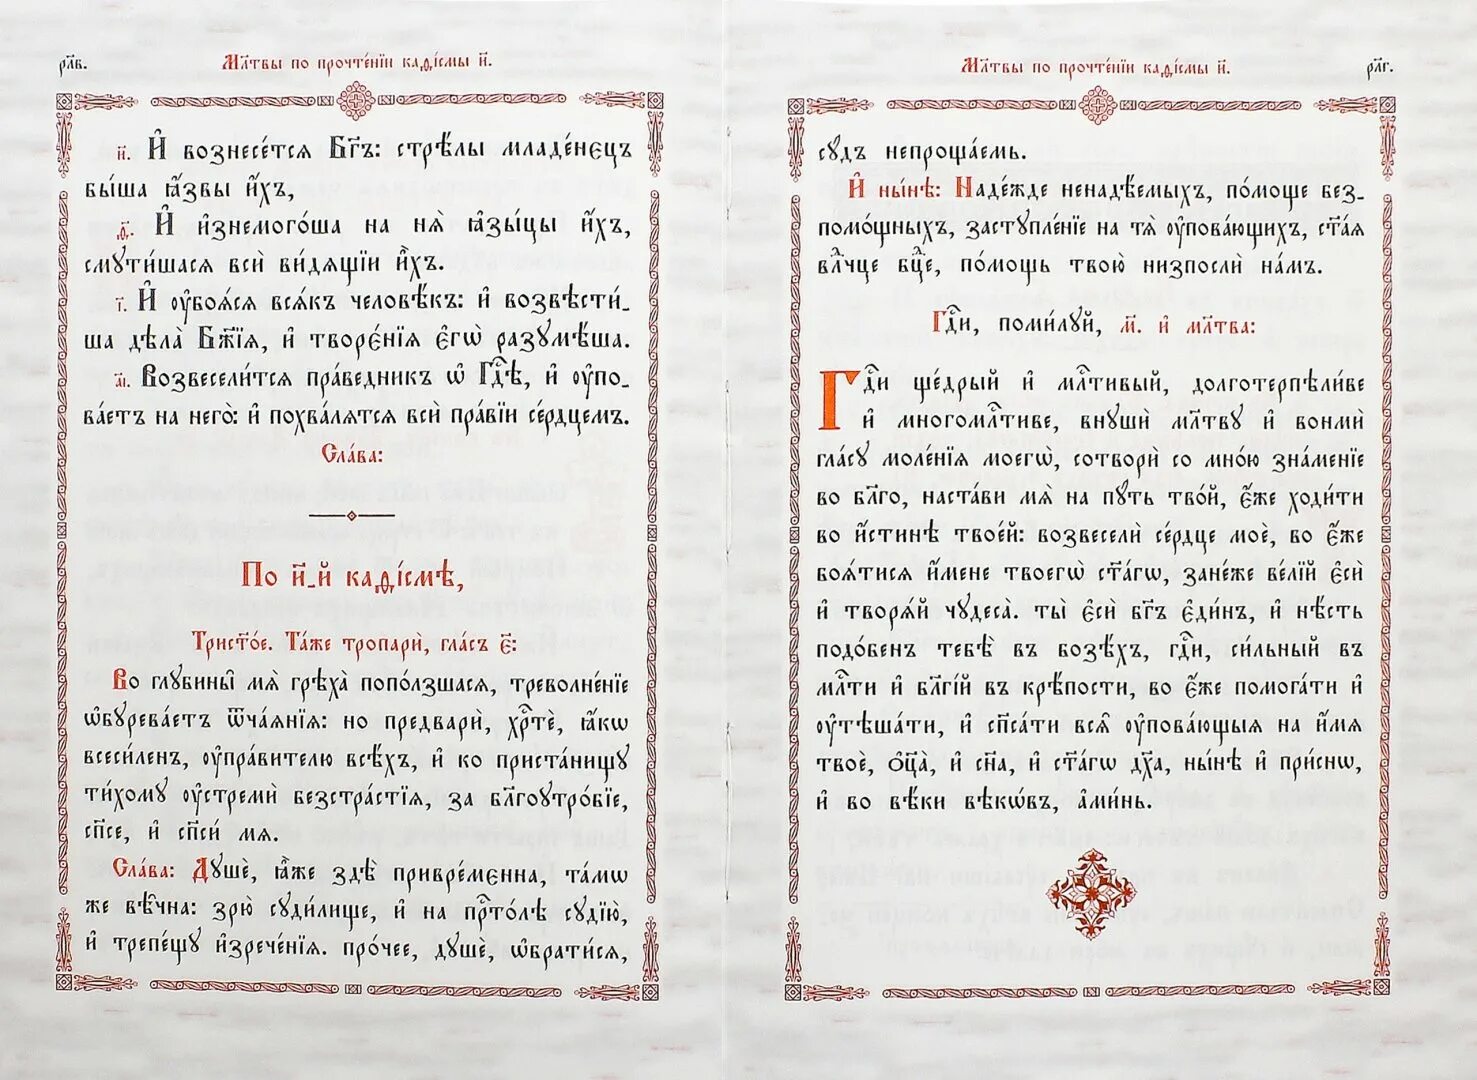 рл҃в.
Мл҃твы по прочте́нїи каѳі́смы и҃.
и҃. И҆ вознесе́тся Бг҃ъ: стрѣ́лы младе́нєцъ
бы́ша ꙗ҆́звы и҆́хъ,
ѳ҃. И҆ и҆знемого́ша на нѧ̀ ꙗ҆зы́цы и҆́хъ,
смути́шася всѝ ви́дящїи и҆̀хъ.
і҃. И҆ ᲂу҆боя́ся всѧ́къ человѣ́къ: и҆ возвѣсти́-
ша дѣла̀ Бж҃їѧ, и҆ творє́нїѧ є҆гѡ̀ разумѣ́ша.
а҃і. Возвесели́тся пра́ведникъ ѡ҆ Гдⷭ҇ѣ, и҆ ᲂу҆по-
ва́етъ на него̀: и҆ похва́лятся всѝ пра́вїи се́рдцемъ.
Сла́ва:
По и҃-й каѳі́смѣ,
Трист҃о́е. Та́же тропарѝ, гла́съ є҃:
Во глубины̀ мѧ̀ грѣха̀ попо́лзшася, треволне́нїе
ѡ҆бурева́етъ ѿча́ѧнїѧ: но предварѝ, хрⷭ҇тѐ, ꙗ҆́кѡ
всеси́ленъ, ᲂу҆пра́вителю всѣ́хъ, и҆ ко приста́нищу
ти́хому ᲂу҆стремѝ безстра́стїѧ, за бл҃гоутро́бїе,
сп҃се, и҆ сп҃сѝ мѧ̀.
Сла́ва: Душѐ, ꙗ҆̀же здѣ̀ привре́менна, та́мѡ
же вѣ̑чна: зрю̀ суди́лище, и҆ на прⷭ҇то́лѣ судїю̀,
и҆ трепе́щу и҆зрече́нїѧ. про́чее, душѐ, ѡ҆брати́ся,
Мл҃твы по прочте́нїи каѳі́смы и҃.
рл҃г.
су́дъ непроща́емь.
И҆ ны́нѣ: Наде́жде ненадѣ́емыхъ, по́моще без-
по́мощныхъ, заступле́нїе на тѧ̀ ᲂу҆пова́ющихъ, ст҃а́ѧ
влⷣчце бцⷣе, по́мощь твою̀ низпослѝ на́мъ.
Гдⷭ҇и, поми́луй, м҃. и҆ мл҃тва:
Гдⷭ҇и ще́дрый и҆ млⷭ҇тивый, долготерпѣли́ве
и҆ многомлⷭ҇тиве, внушѝ мл҃тву и҆ вонмѝ
гла́су моле́нїѧ моегѡ̀, сотворѝ со мно́ю зна́менїе
во бл҃го, наста́ви мѧ̀ на пу́ть тво́й, є҆́же ходи́ти
во и҆́стинѣ твое́й: возвеселѝ се́рдце моѐ, во є҆́же
боя́тися и҆́мене твоегѡ̀ ст҃а́гѡ, зане́же ве́лїй є҆сѝ
и҆ творя́й чудеса̀. ты̀ є҆сѝ бг҃ъ є҆ди́нъ, и҆ нѣ́сть
подо́бенъ тебѣ̀ въ бозѣ́хъ, гдⷭ҇и, си́льный въ
млⷭ҇ти и҆ бл҃гі́й въ крѣ́пости, во є҆́же помога́ти и҆
ᲂу҆тѣша́ти, и҆ сп҃са́ти всѧ̑ ᲂу҆пова́ющыѧ на и҆́мѧ
твоѐ, ѻ҆ц҃а̀, и҆ сн҃а, и҆ ст҃а́гѡ дх҃а, ны́нѣ и҆ при́снѡ,
и҆ во вѣ́ки вѣкѡ́въ, а҆ми́нь.